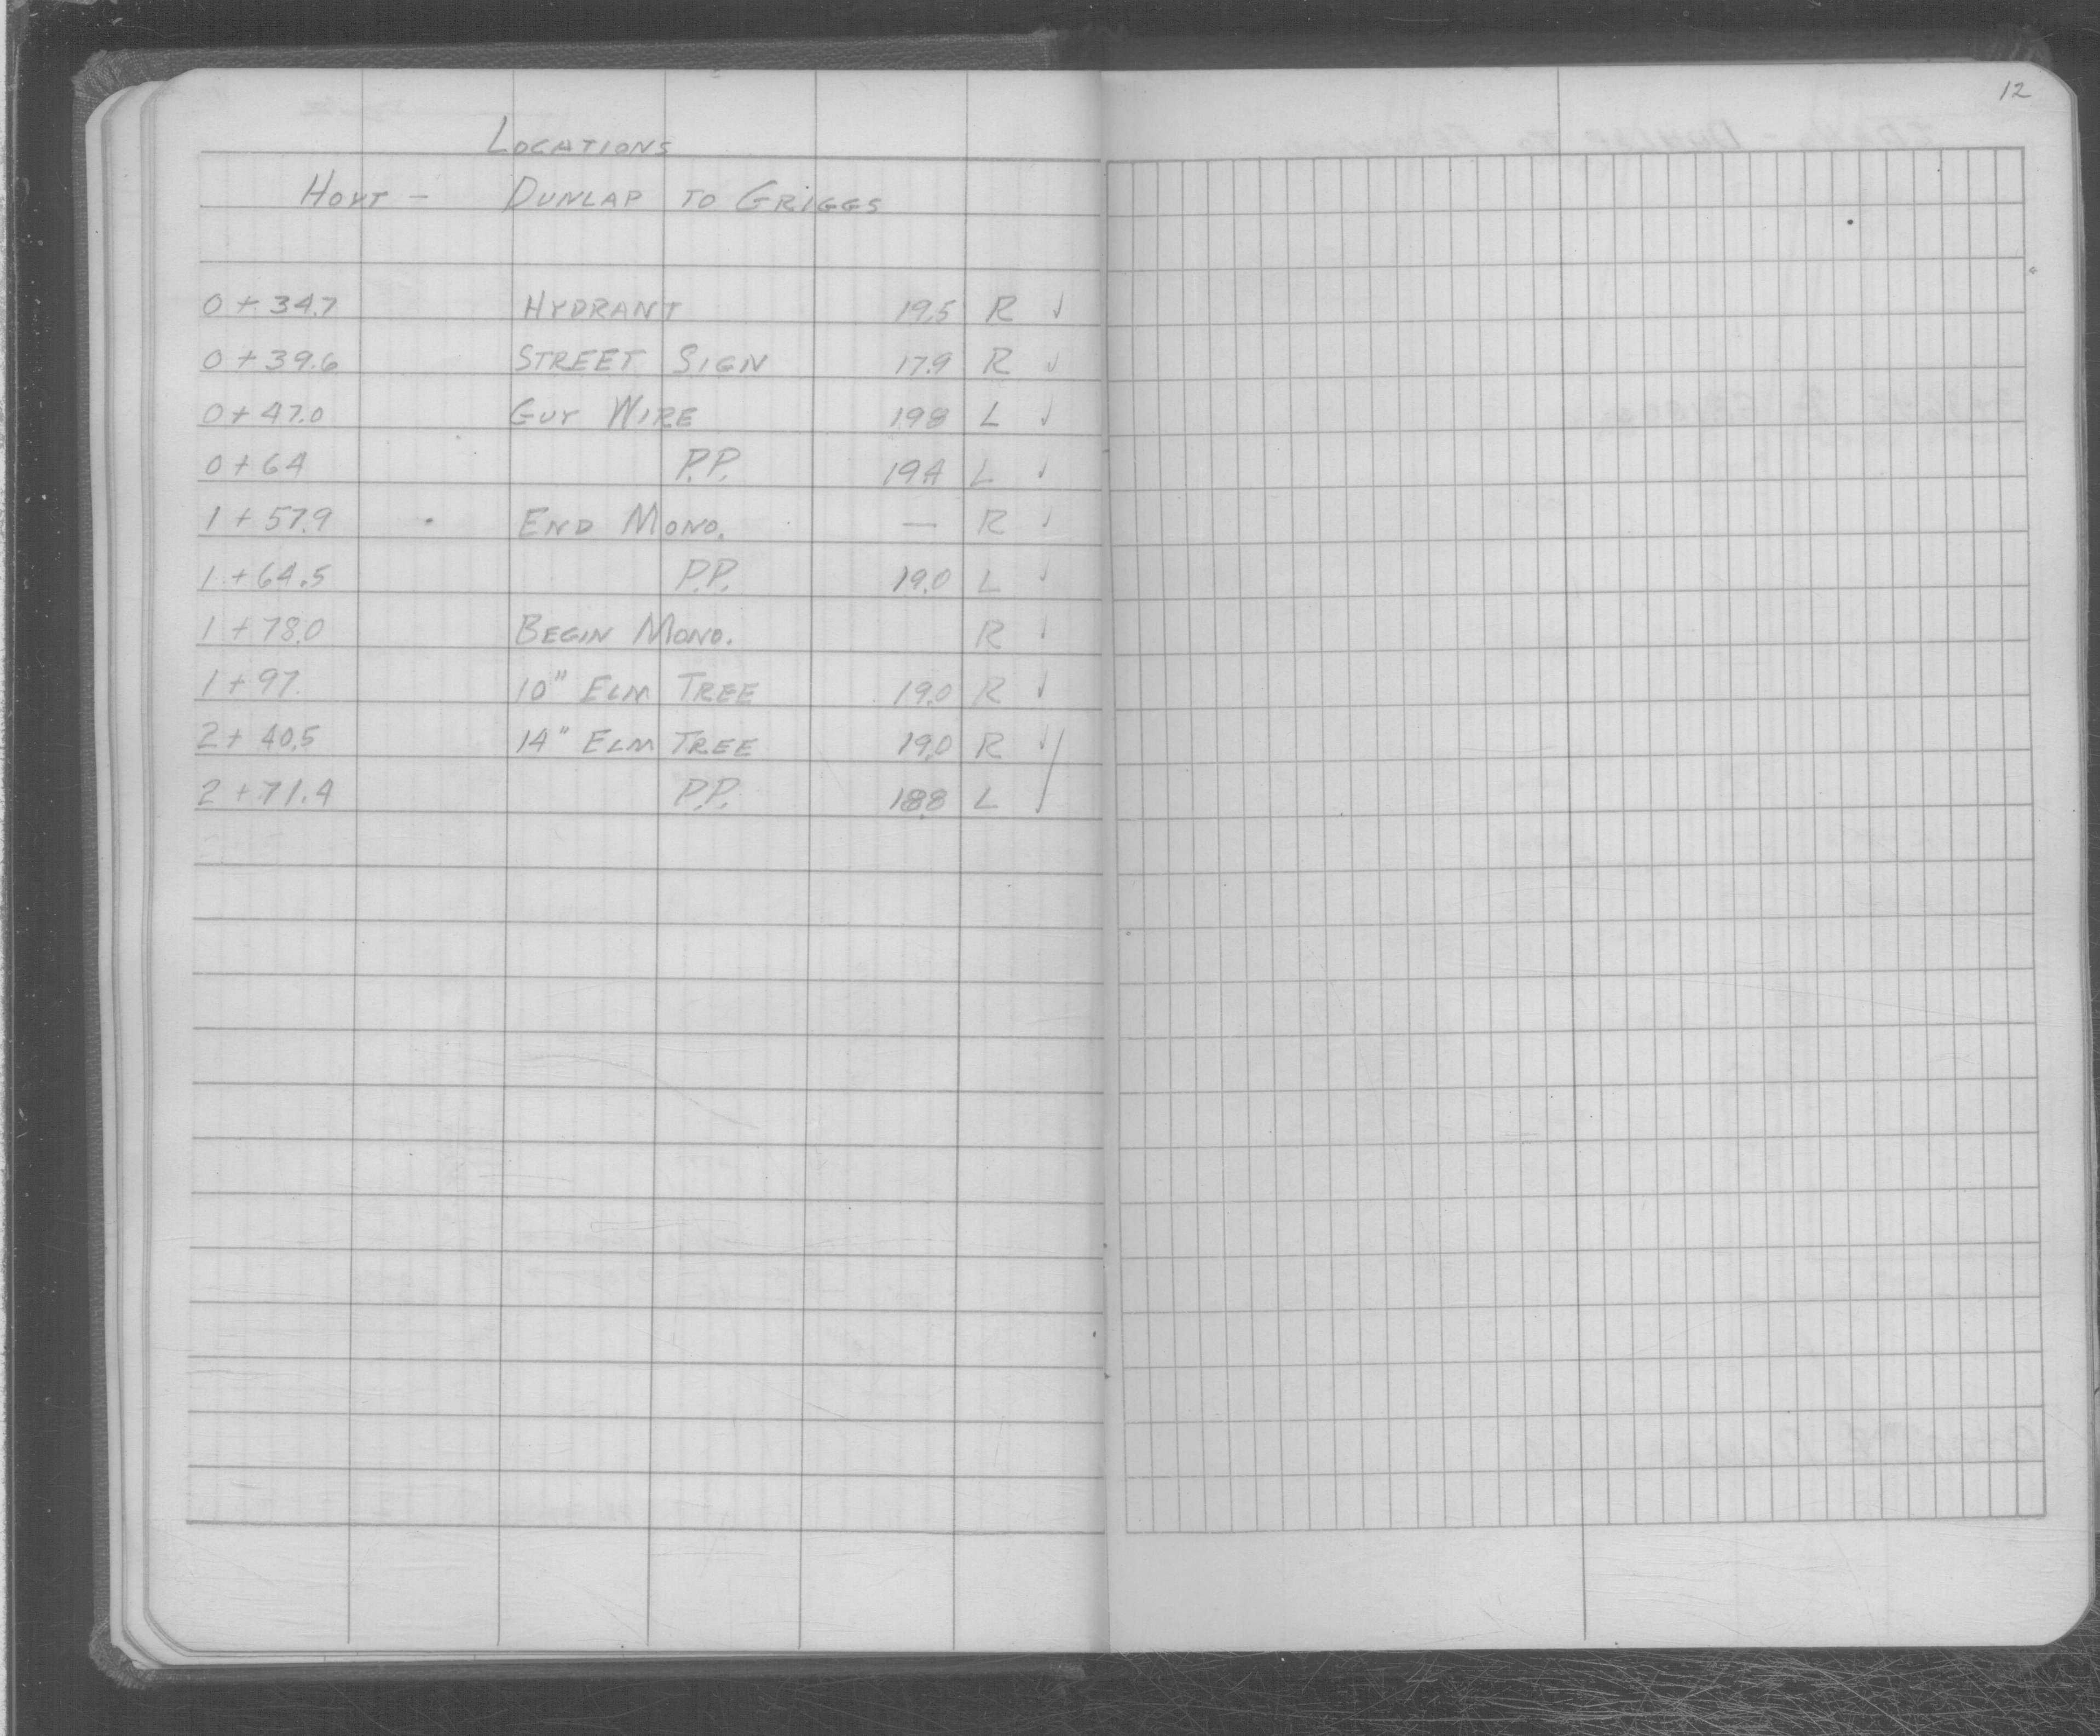 12
LOCATIONS
HOYT - DUNLAP TO GRIGGS
0+34.7 HYDRANT 19.5 R ✓
0+39.6 STREET SIGN 17.9 R ✓
0+47.0 GUY WIRE 19.8 L ✓
0+64 P.P. 19.4 L ✓
1+57.9 END MONO. — R ✓
1+64.5 P.P. 19.0 L ✓
1+78.0 BEGIN MONO. R ✓
1+97. 10" ELM TREE 19.0 R ✓
2+40.5 14" ELM TREE 19.0 R ✓
2+71.4 P.P. 18.8 L ✓